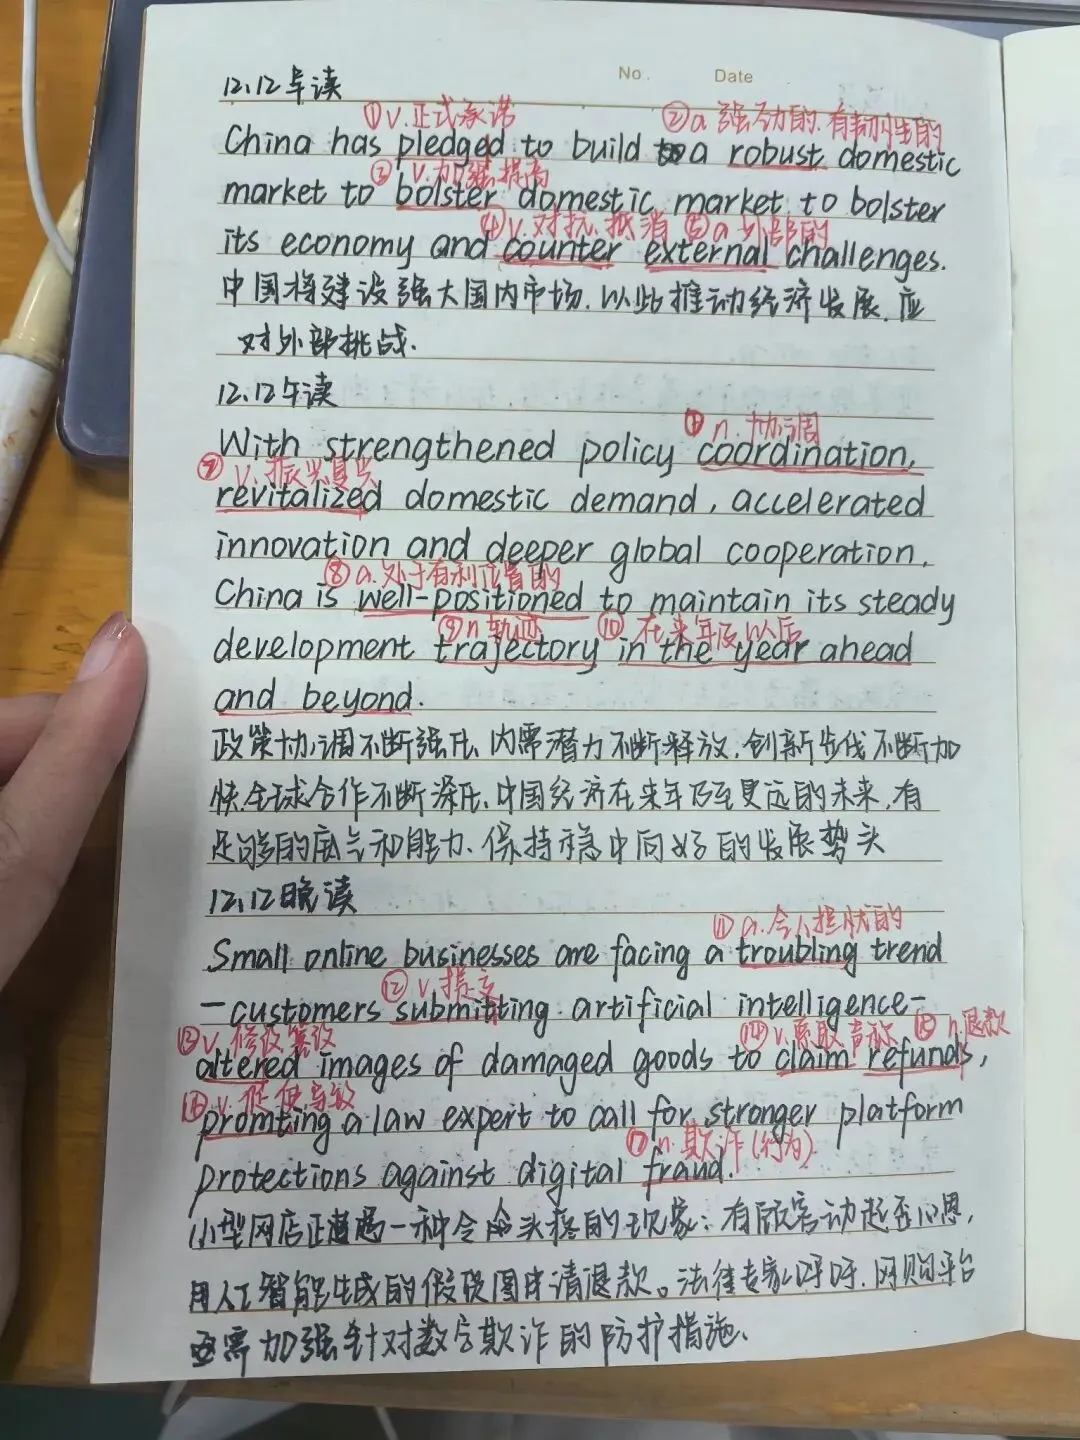 No. Date
12.12早读
①v.正式承诺 ②a 强劲的.有韧性的
China has pledged to build a robust domestic
③ v.加强提高
market to bolster domestic market to bolster
④v.对抗.抵消 ⑤a 外部的
its economy and counter external challenges.
中国将建设强大国内市场.以此推动经济发展.应
对外部挑战.
12.12午读
n.协调
With strengthened policy coordination,
⑦ v.振兴复兴
revitalized domestic demand, accelerated
innovation and deeper global cooperation,
⑧ a.处于有利位置的
China is well-positioned to maintain its steady
⑨n轨迹 ⑩ 在来年及以后
development trajectory in the year ahead
and beyond.
政策协调不断强化、内需潜力不断释放.创新步伐不断加
快.全球合作不断深化、中国经济在来年乃至更远的未来.有
足够的底气和能力、保持稳中向好的发展势头
12.12晚读
⑪ a.令人担忧的
Small online businesses are facing a troubling trend
⑫ v.提交
—customers submitting artificial intelligence-
⑬v.修改篡改 ⑭v.索取声称 ⑮ n.退款
altered images of damaged goods to claim refunds,
v.促使导致
promting a law expert to call for stronger platform
⑰ n.欺诈(行为)
protections against digital fraud.
小型网店正遭遇一种令人头疼的现象:有顾客动起歪心思,
用人工智能生成的假破图申请退款。法律专家呼吁.网购平台
亟需加强针对数字欺诈的防护措施.